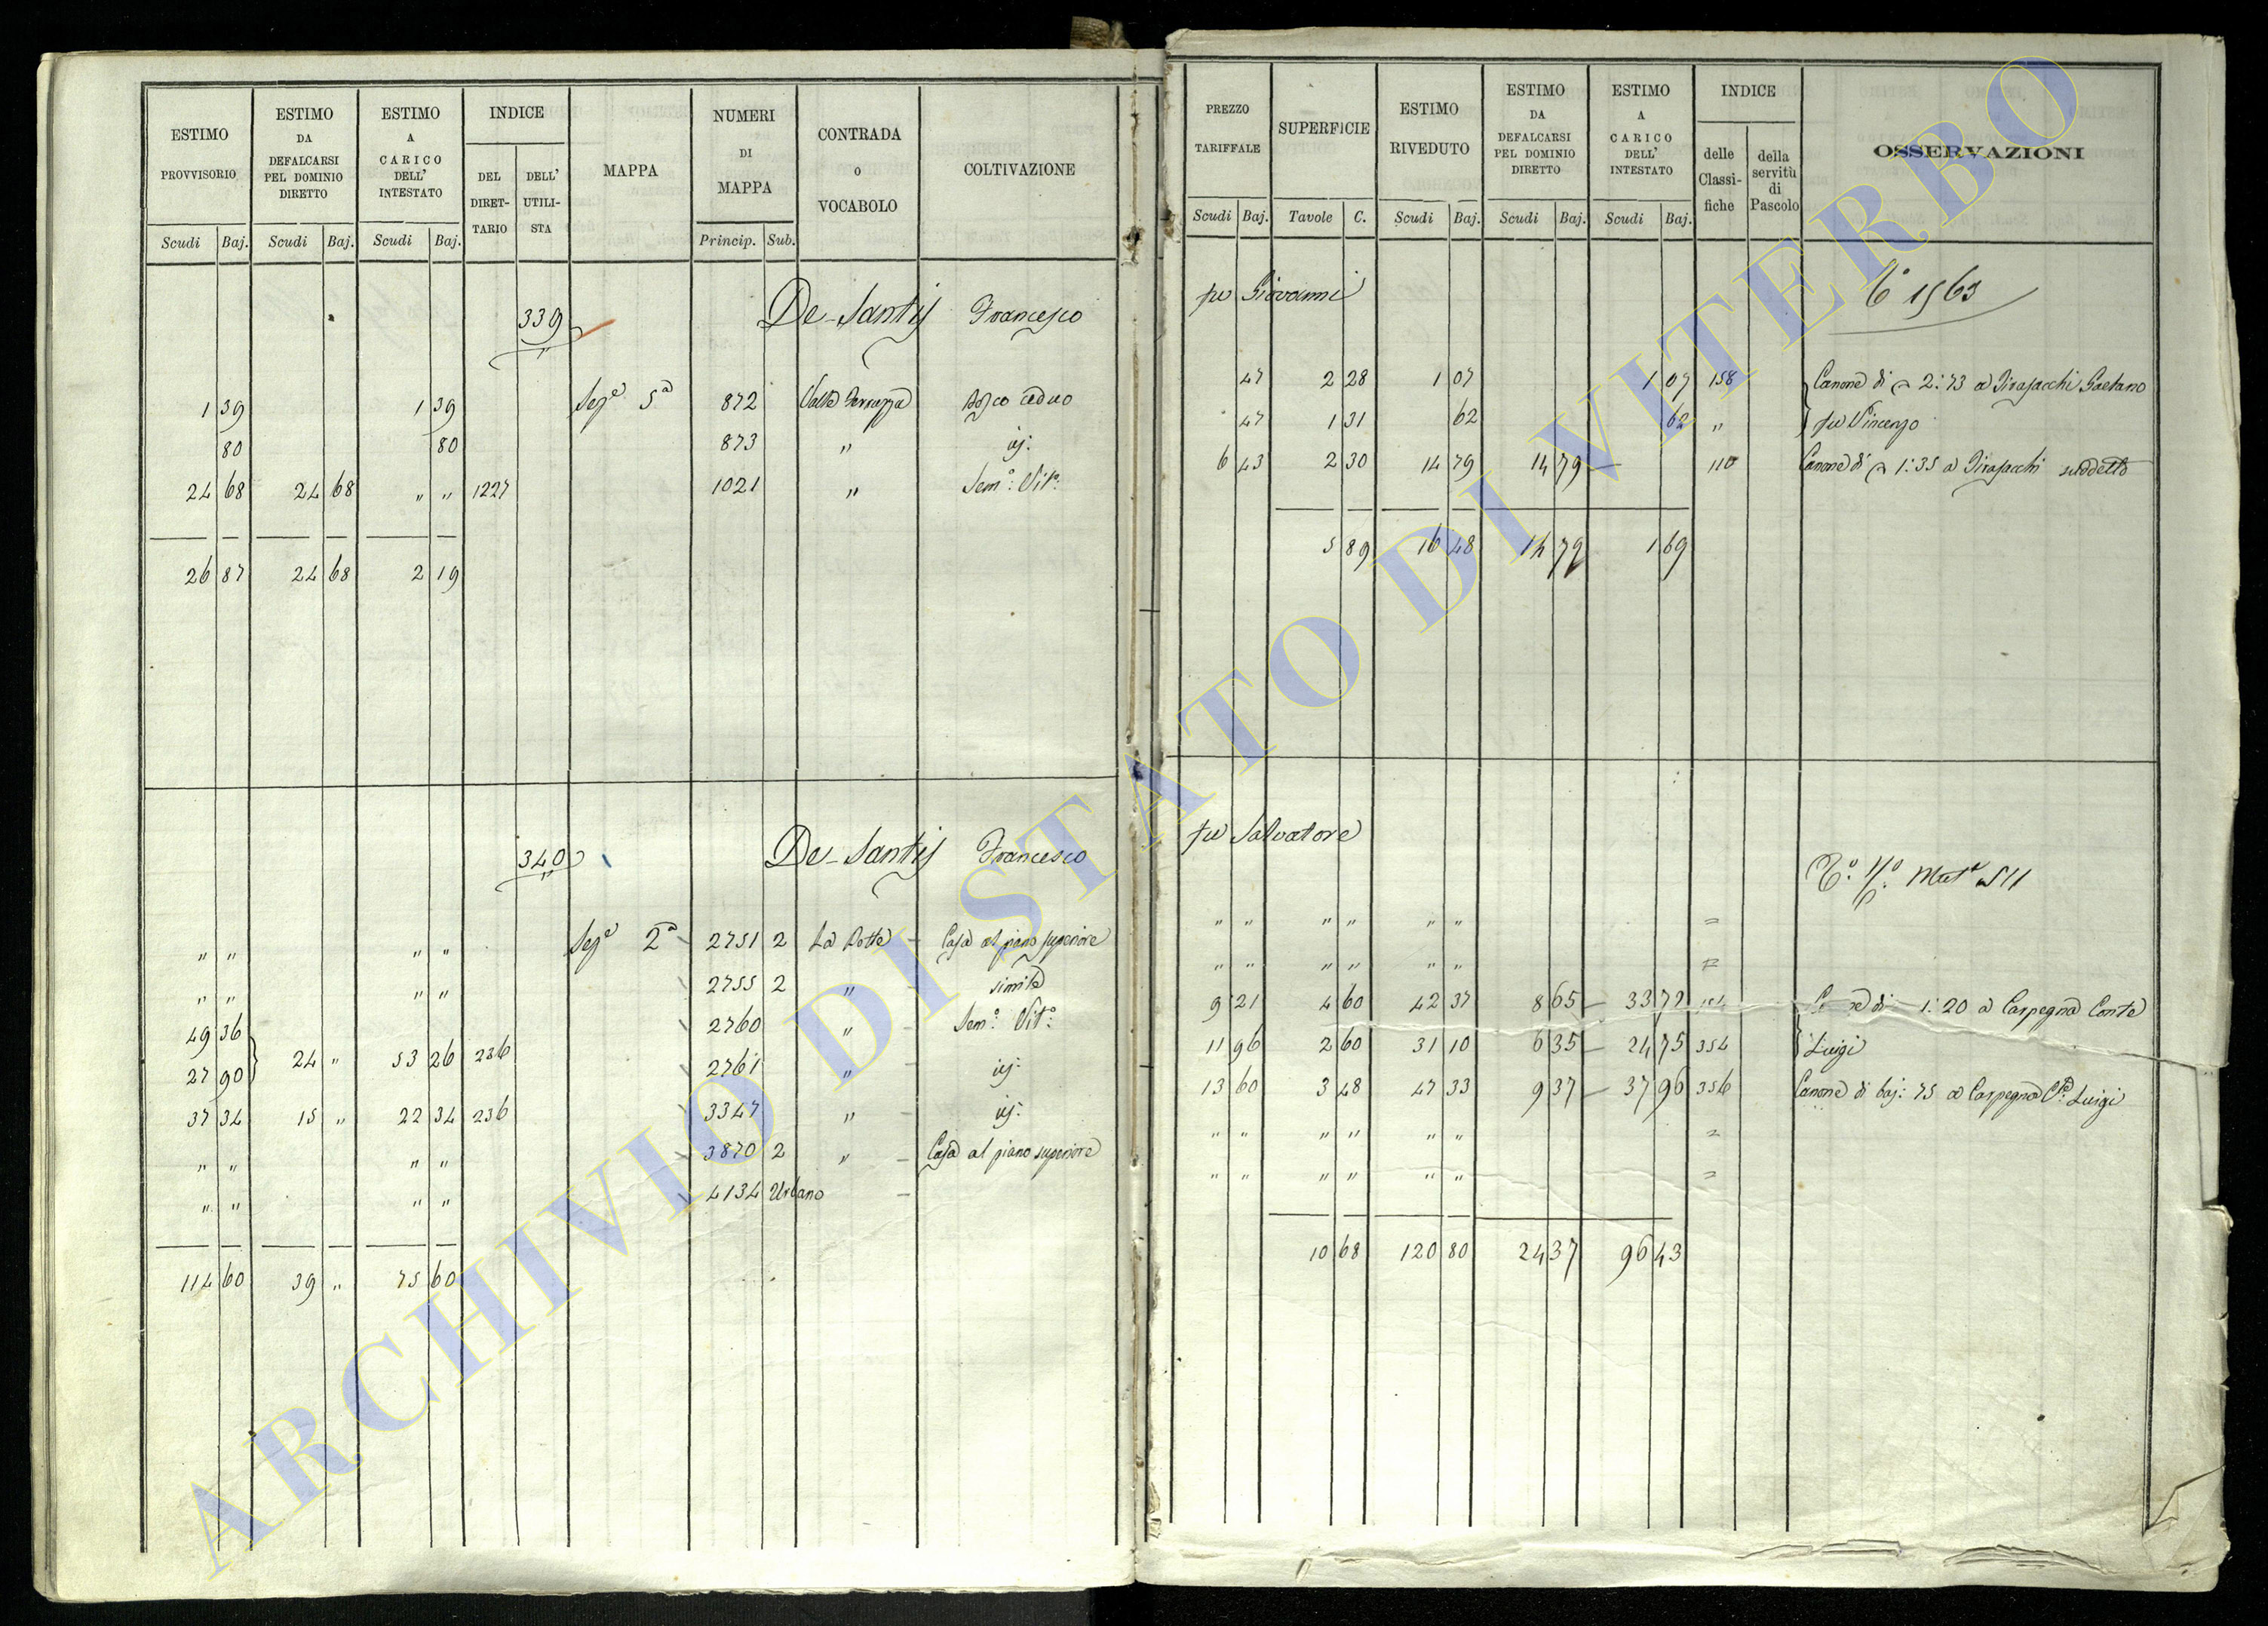 ESTIMO PROVVISORIO Scudi Baj.
ESTIMO DA DEFALCARSI PEL DOMINIO DIRETTO Scudi Baj.
ESTIMO A CARICO DELL' INTESTATO Scudi Baj.
INDICE DEL DIRET-TARIO DELL' UTILI-STA
MAPPA
NUMERI DI MAPPA Princip. Sub.
CONTRADA o VOCABOLO
COLTIVAZIONE
339 De-Santis Francesco
1 39 1 39 Seze 5a 872 Bosco ceduo
80 80 873 " id:
24 68 24 68 " " 1227 1021 " Sem.o: Vit.o:
26 87 24 68 2 19
340 De-Santis Francesco
" " " " Seze 2a 2751 2 La Botte Casa al piano superiore
" " " " 2755 2 " simile
49 36 2760 " Sem.o: Vit.o:
27 90 24 " 53 26 236 2761 " id:
37 34 15 " 22 34 236 3347 " id:
" " " " 3870 2 " Casa al piano superiore
" " " " 4134 Urbano
114 60 39 " 75 60
PREZZO TARIFFALE Scudi Baj.
SUPERFICIE Tavole C.
ESTIMO RIVEDUTO Scudi Baj.
ESTIMO DA DEFALCARSI PEL DOMINIO DIRETTO Scudi Baj.
ESTIMO A CARICO DELL' INTESTATO Scudi Baj.
INDICE delle Classi-fiche della servitù di Pascolo
OSSERVAZIONI
fu Giovanni 1563
47 2 28 1 07 1 07 158 Canone di 2:73 a Tirasacchi Gaetano
47 1 31 62 62 " fu Vincenzo
6 43 2 30 14 79 14 79 — 110 Canone di 1:35 a Tirasacchi suddetto
5 89 16 48 14 79 1 69
fu Salvatore
" " " " " " =
" " " " " " =
9 21 4 60 42 37 8 65 — 33 72 di 1:20 a Carpegna Conte
11 96 2 60 31 10 6 35 — 24 75 354 Luigi
13 60 3 48 47 33 9 37 — 37 96 356 Canone di baj: 75 a Carpegna Cte Luigi
" " " " " " =
" " " " " " =
10 68 120 80 24 37 96 43
ARCHIVIO DI STATO DI VITERBO